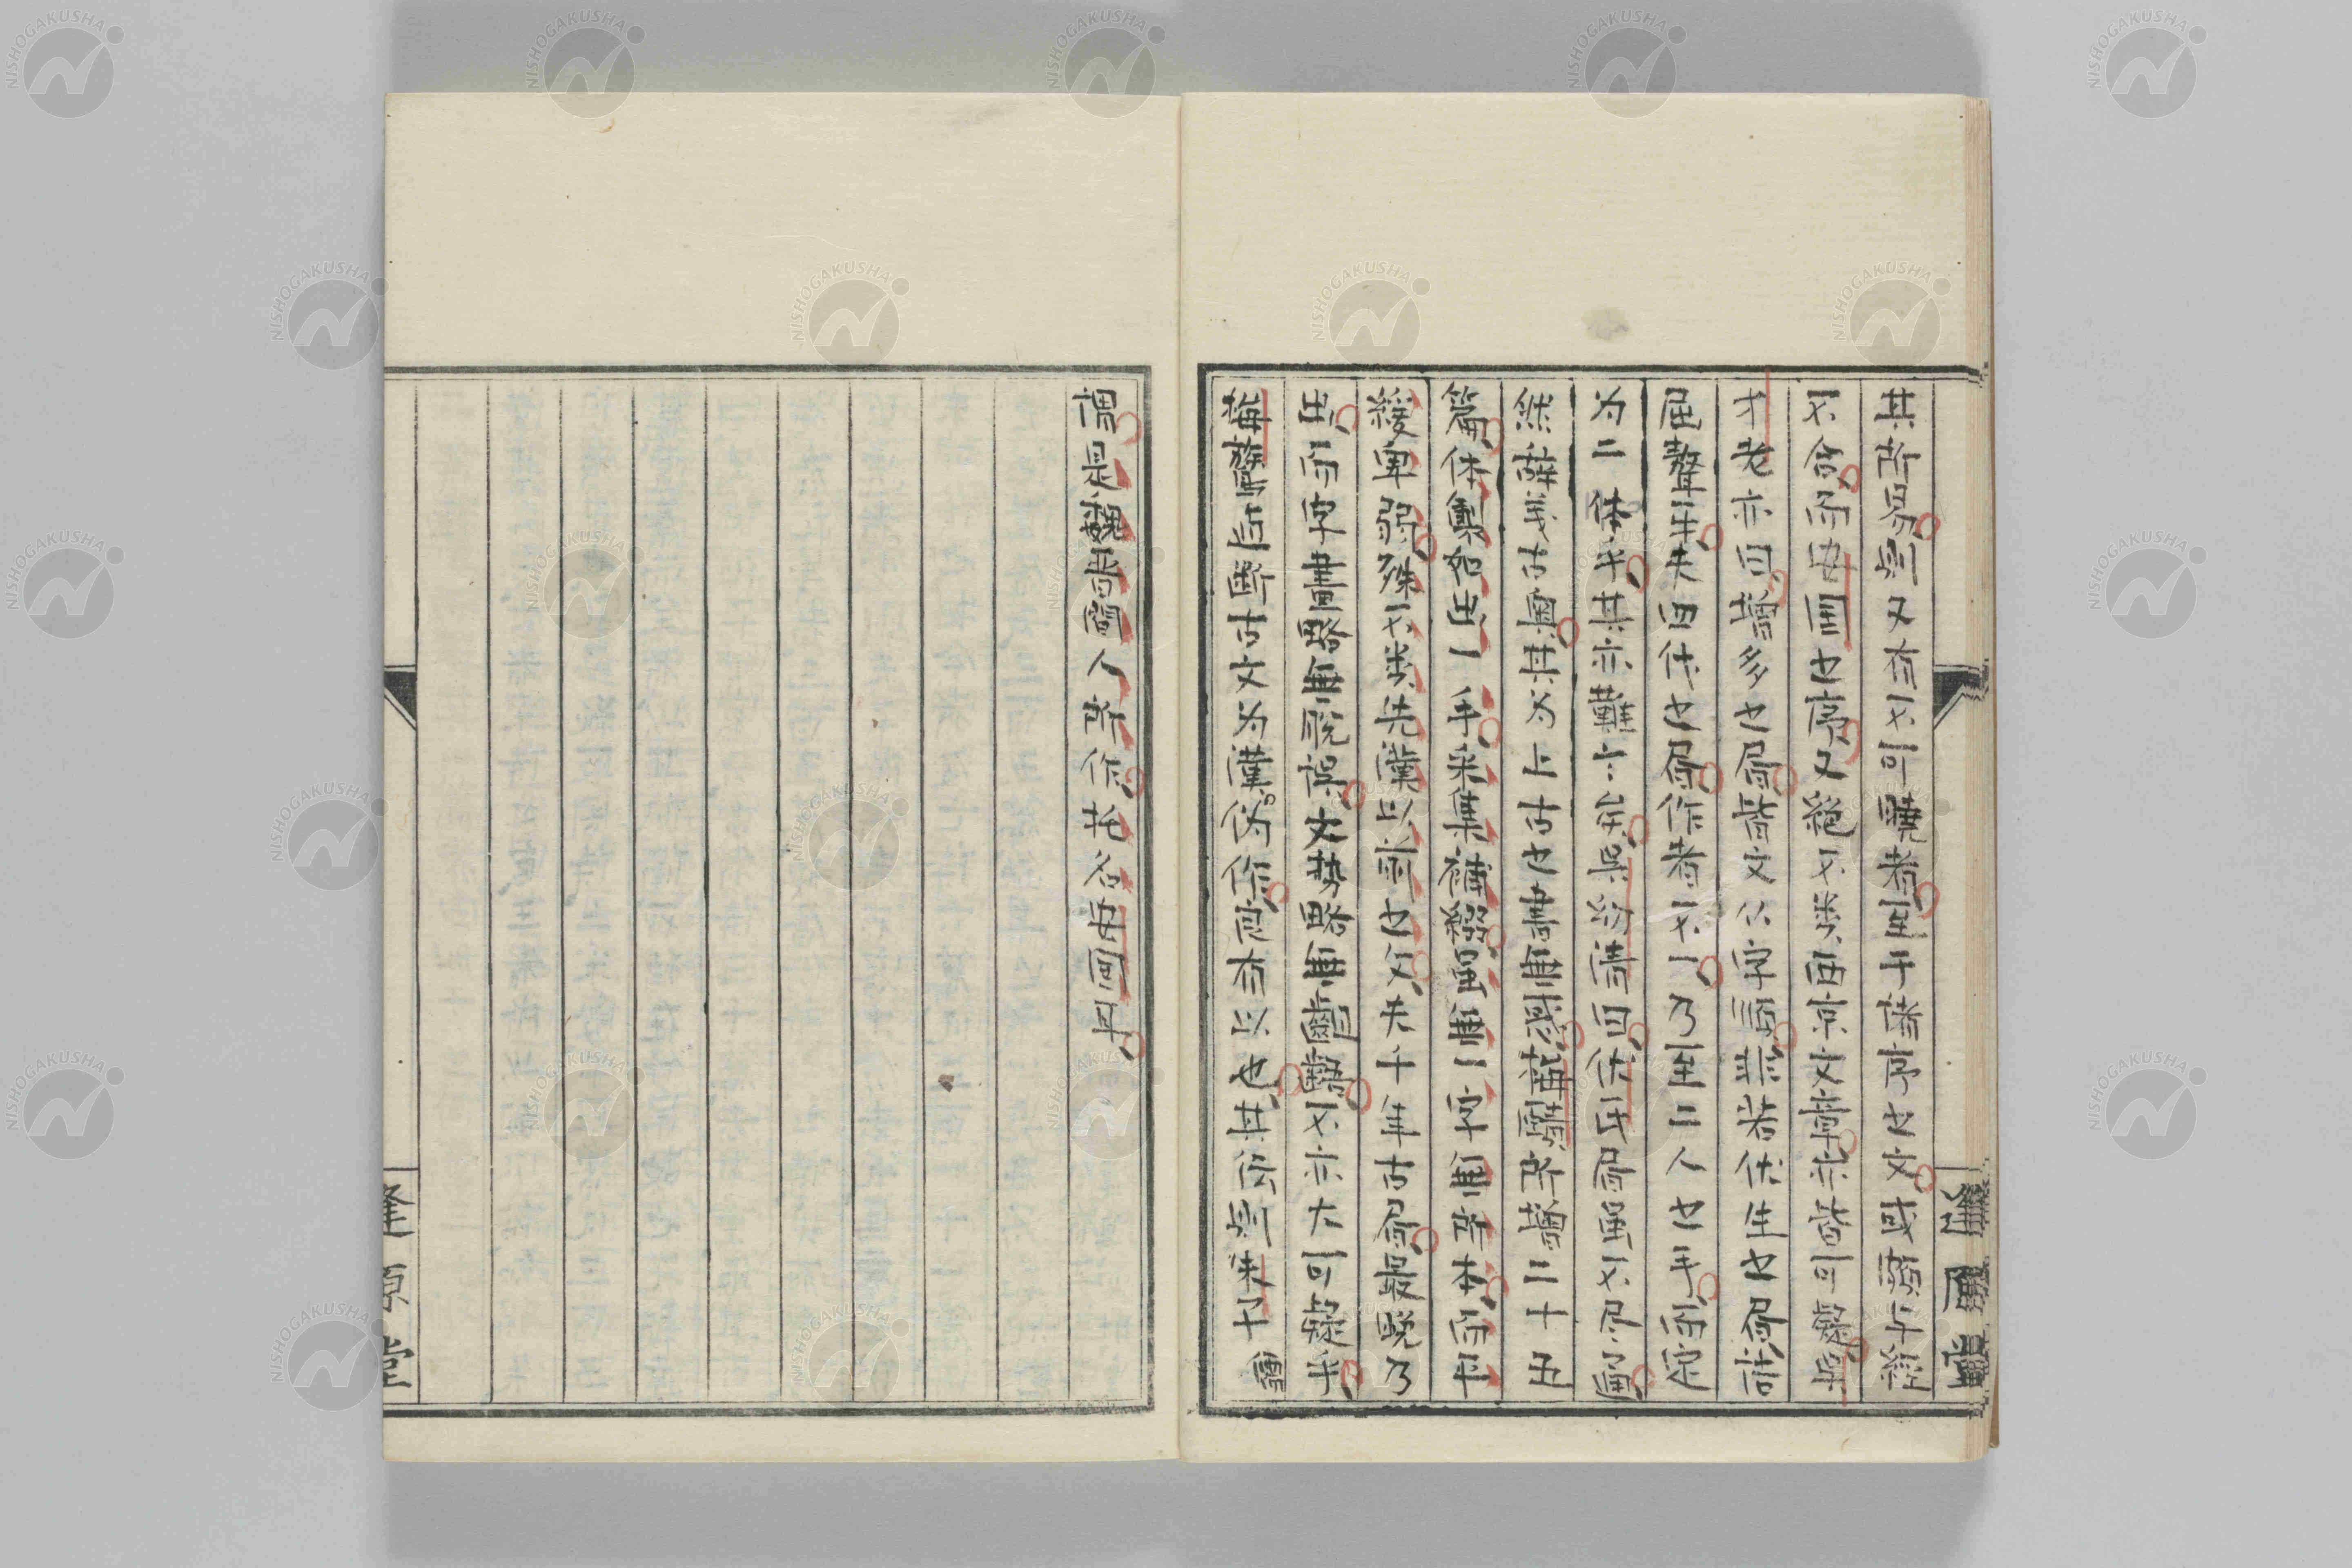 其所易則又有不可曉者至于諸序之文或頗与經
不合而安国之序又絶不类西京文章亦皆可疑吳
才老亦曰增多之書皆文从字順非若伏生之書詰
屈聱牙夫四代之書作者不一乃至二人之手而定
为二体乎其亦難言矣吳幼清曰伏氏書虽不尽通
然辞义古奥其为上古之書無惑梅賾所增二十五
篇体製如出一手采集補綴虽無一字無所本而平
緩卑弱殊不类先漢以前之文夫千年古書最晚乃
出而字畫略無脱误文势略無齟齬不亦大可疑乎
梅鷟断古文为漢伪作良有以也其伝則朱子
謂是魏晋間人所作托名安国耳
逢原堂
NISHOGAKUSHA